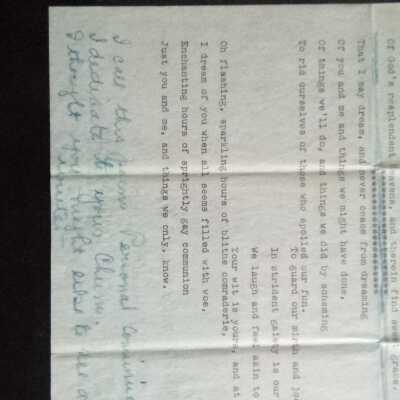 Of God's resplendent heavens, and therein find some grace,
That I may dream, and never cease from dreaming
Of you and me and things we might have done,
Of things we'll do, and things we did by scheming
To rid ourselves of those who spoiled our fun.
To guard our mirth and
In strident gaiety is our
We laugh and feel akin to
Your wit is yours, and at
Oh flashing, sparkling hours of blithe comraderie,
I dream of you when all seems filled with woe,
Enchanting hours of sprightly gay communion
Just you and me, and things we only, know.
I call this Personal
I dedicate it to you,
I thought you might like to see a